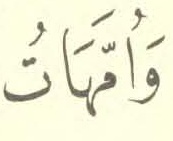 وَأُمَّهَاتُ